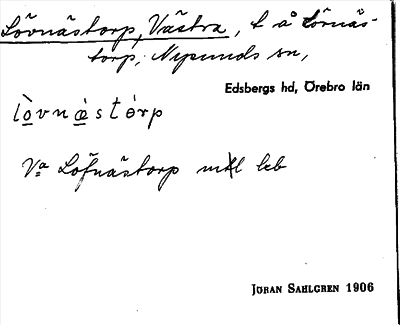 Lövnästorp, Västra, t å Lövnäs-
torp, Nysunds sn,
Edsbergs hd, Örebro län
lòvnæ̀stórp
Vᵃ Löfnästorp mtl lrb
JÖRAN SAHLGREN 1906